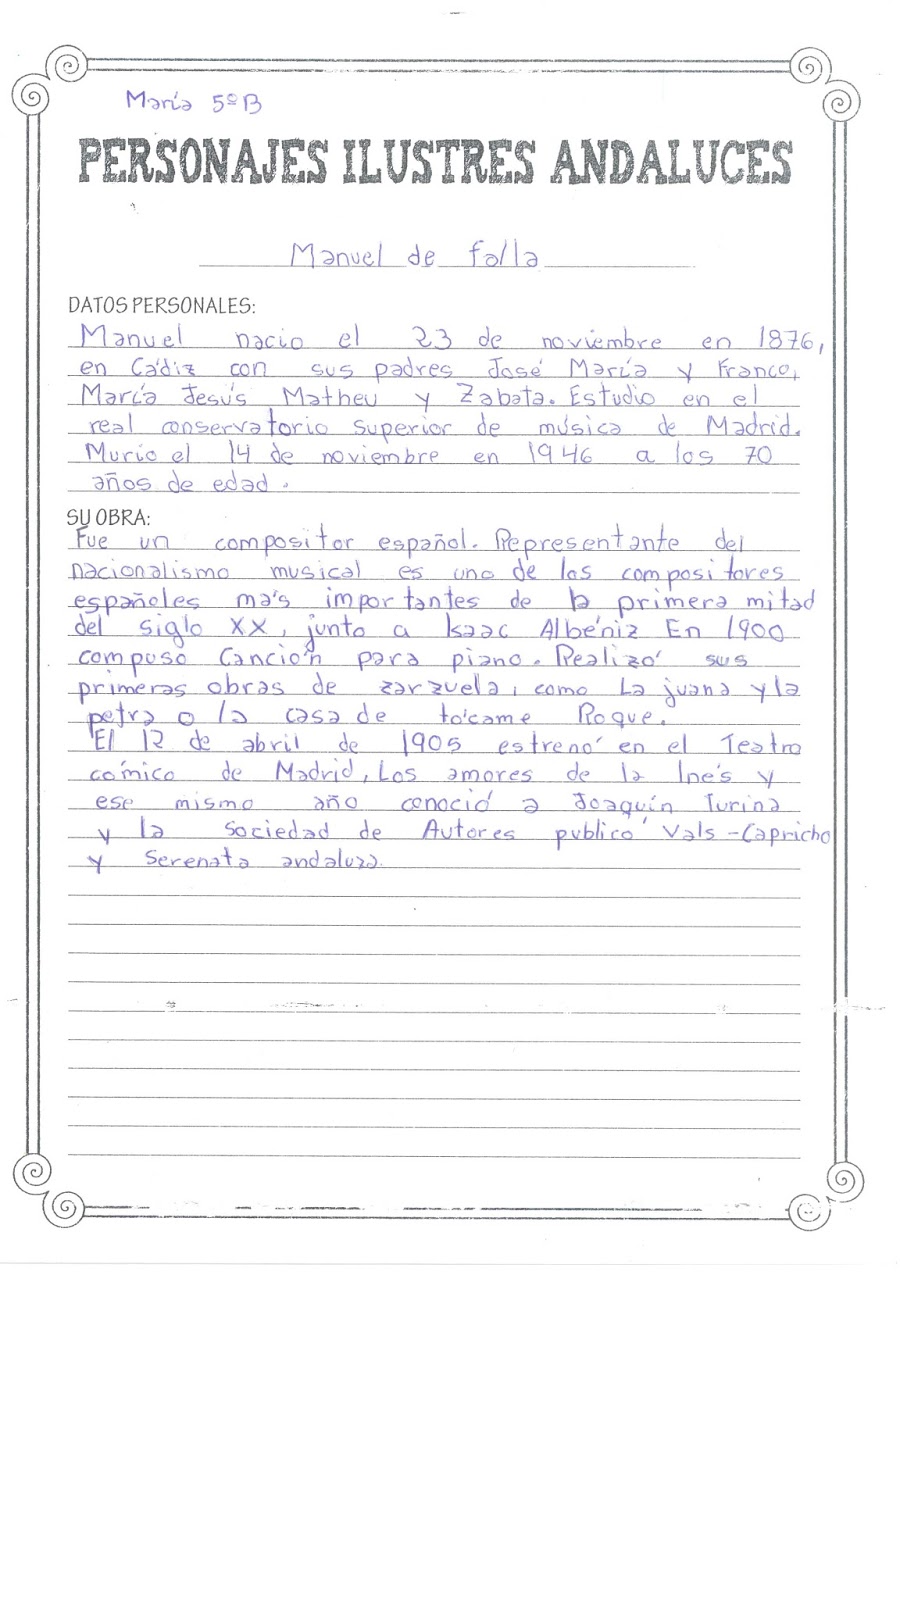 María 5ºB
PERSONAJES ILUSTRES ANDALUCES
Manuel de falla
DATOS PERSONALES:
Manuel nacio el 23 de noviembre en 1876,
en Cádiz con sus padres José María y Franco,
María Jesús Matheu y Zabata. Estudio en el
real conservatorio Superior de música de Madrid.
Murio el 14 de noviembre en 1946 a los 70
años de edad.
SU OBRA:
Fue un compositor español. Representante del
nacionalismo musical es uno de los compositores
españoles más importantes de la primera mitad
del siglo XX, junto a Isaac Albéniz En 1900
compuso Canción para piano. Realizó sus
primeras obras de zarzuela, como La juana y la
petra o la casa de tócame Roque.
El 12 de abril de 1905 estrenó en el Teatro
cómico de Madrid, Los amores de la Inés y
ese mismo año conoció a Joaquín Turina
y la Sociedad de Autores publicó Vals-Capricho
y Serenata andaluza.